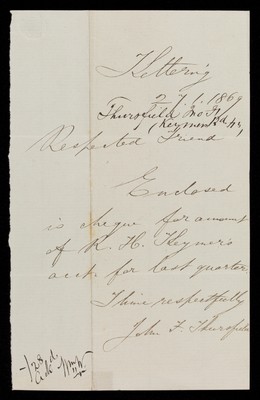 Kettering
2/7.1.1869
Thursfield Jno F/
(Keymer Rd H/)
Respected Friend
Enclosed
is cheque for amount
of R. H. Keymer's
acct. for last quarter.
Thine respectfully
John F. Thursfield